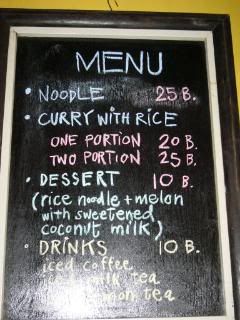 MENU
• NOODLE 25 B.
• CURRY WITH RICE
ONE PORTION 20 B.
TWO PORTION 25 B.
• DESSERT 10 B.
(rice noodle + melon
with sweetened
coconut milk)
• DRINKS 10 B.
iced coffee
milk tea
lemon tea